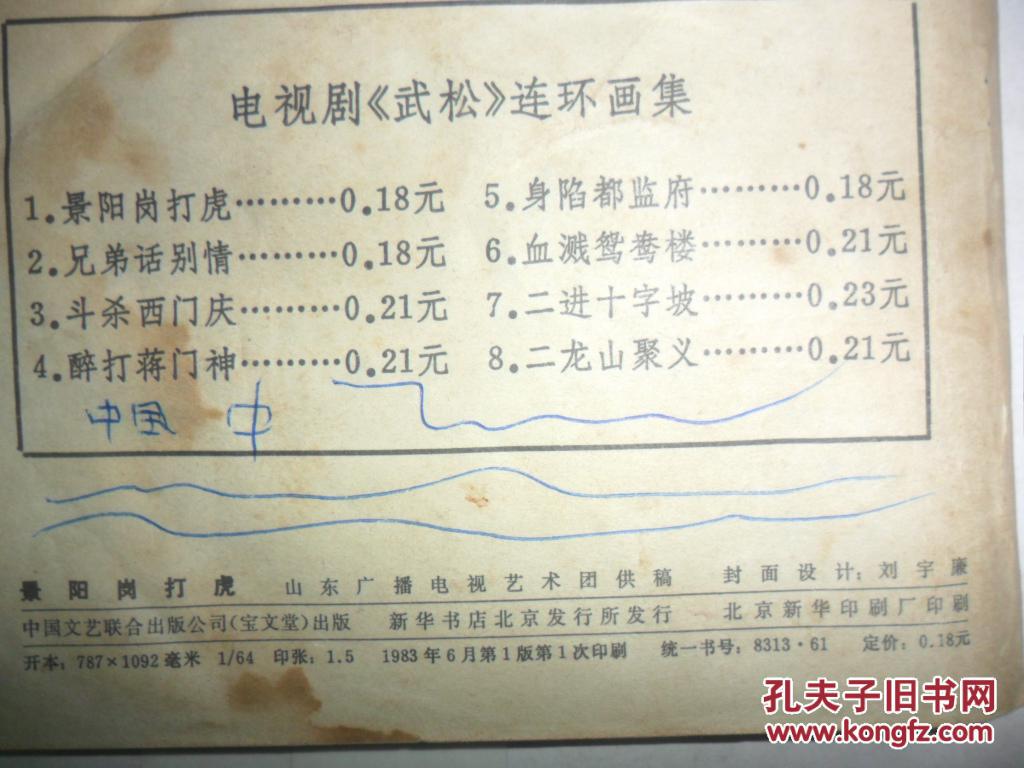 电视剧《武松》连环画集
1.景阳岗打虎………0.18元
2.兄弟话别情………0.18元
3.斗杀西门庆………0.21元
4.醉打蒋门神………0.21元
5.身陷都监府………0.18元
6.血溅鸳鸯楼………0.21元
7.二进十字坡………0.23元
8.二龙山聚义………0.21元
中国 中
景阳岗打虎 山东广播电视艺术团供稿 封面设计:刘宇廉
中国文艺联合出版公司(宝文堂)出版 新华书店北京发行所发行 北京新华印刷厂印刷
开本:787×1092毫米 1/64 印张:1.5 1983年6月第1版第1次印刷 统一书号:8313·61 定价:0.18元
孔夫子旧书网
www.kongfz.com